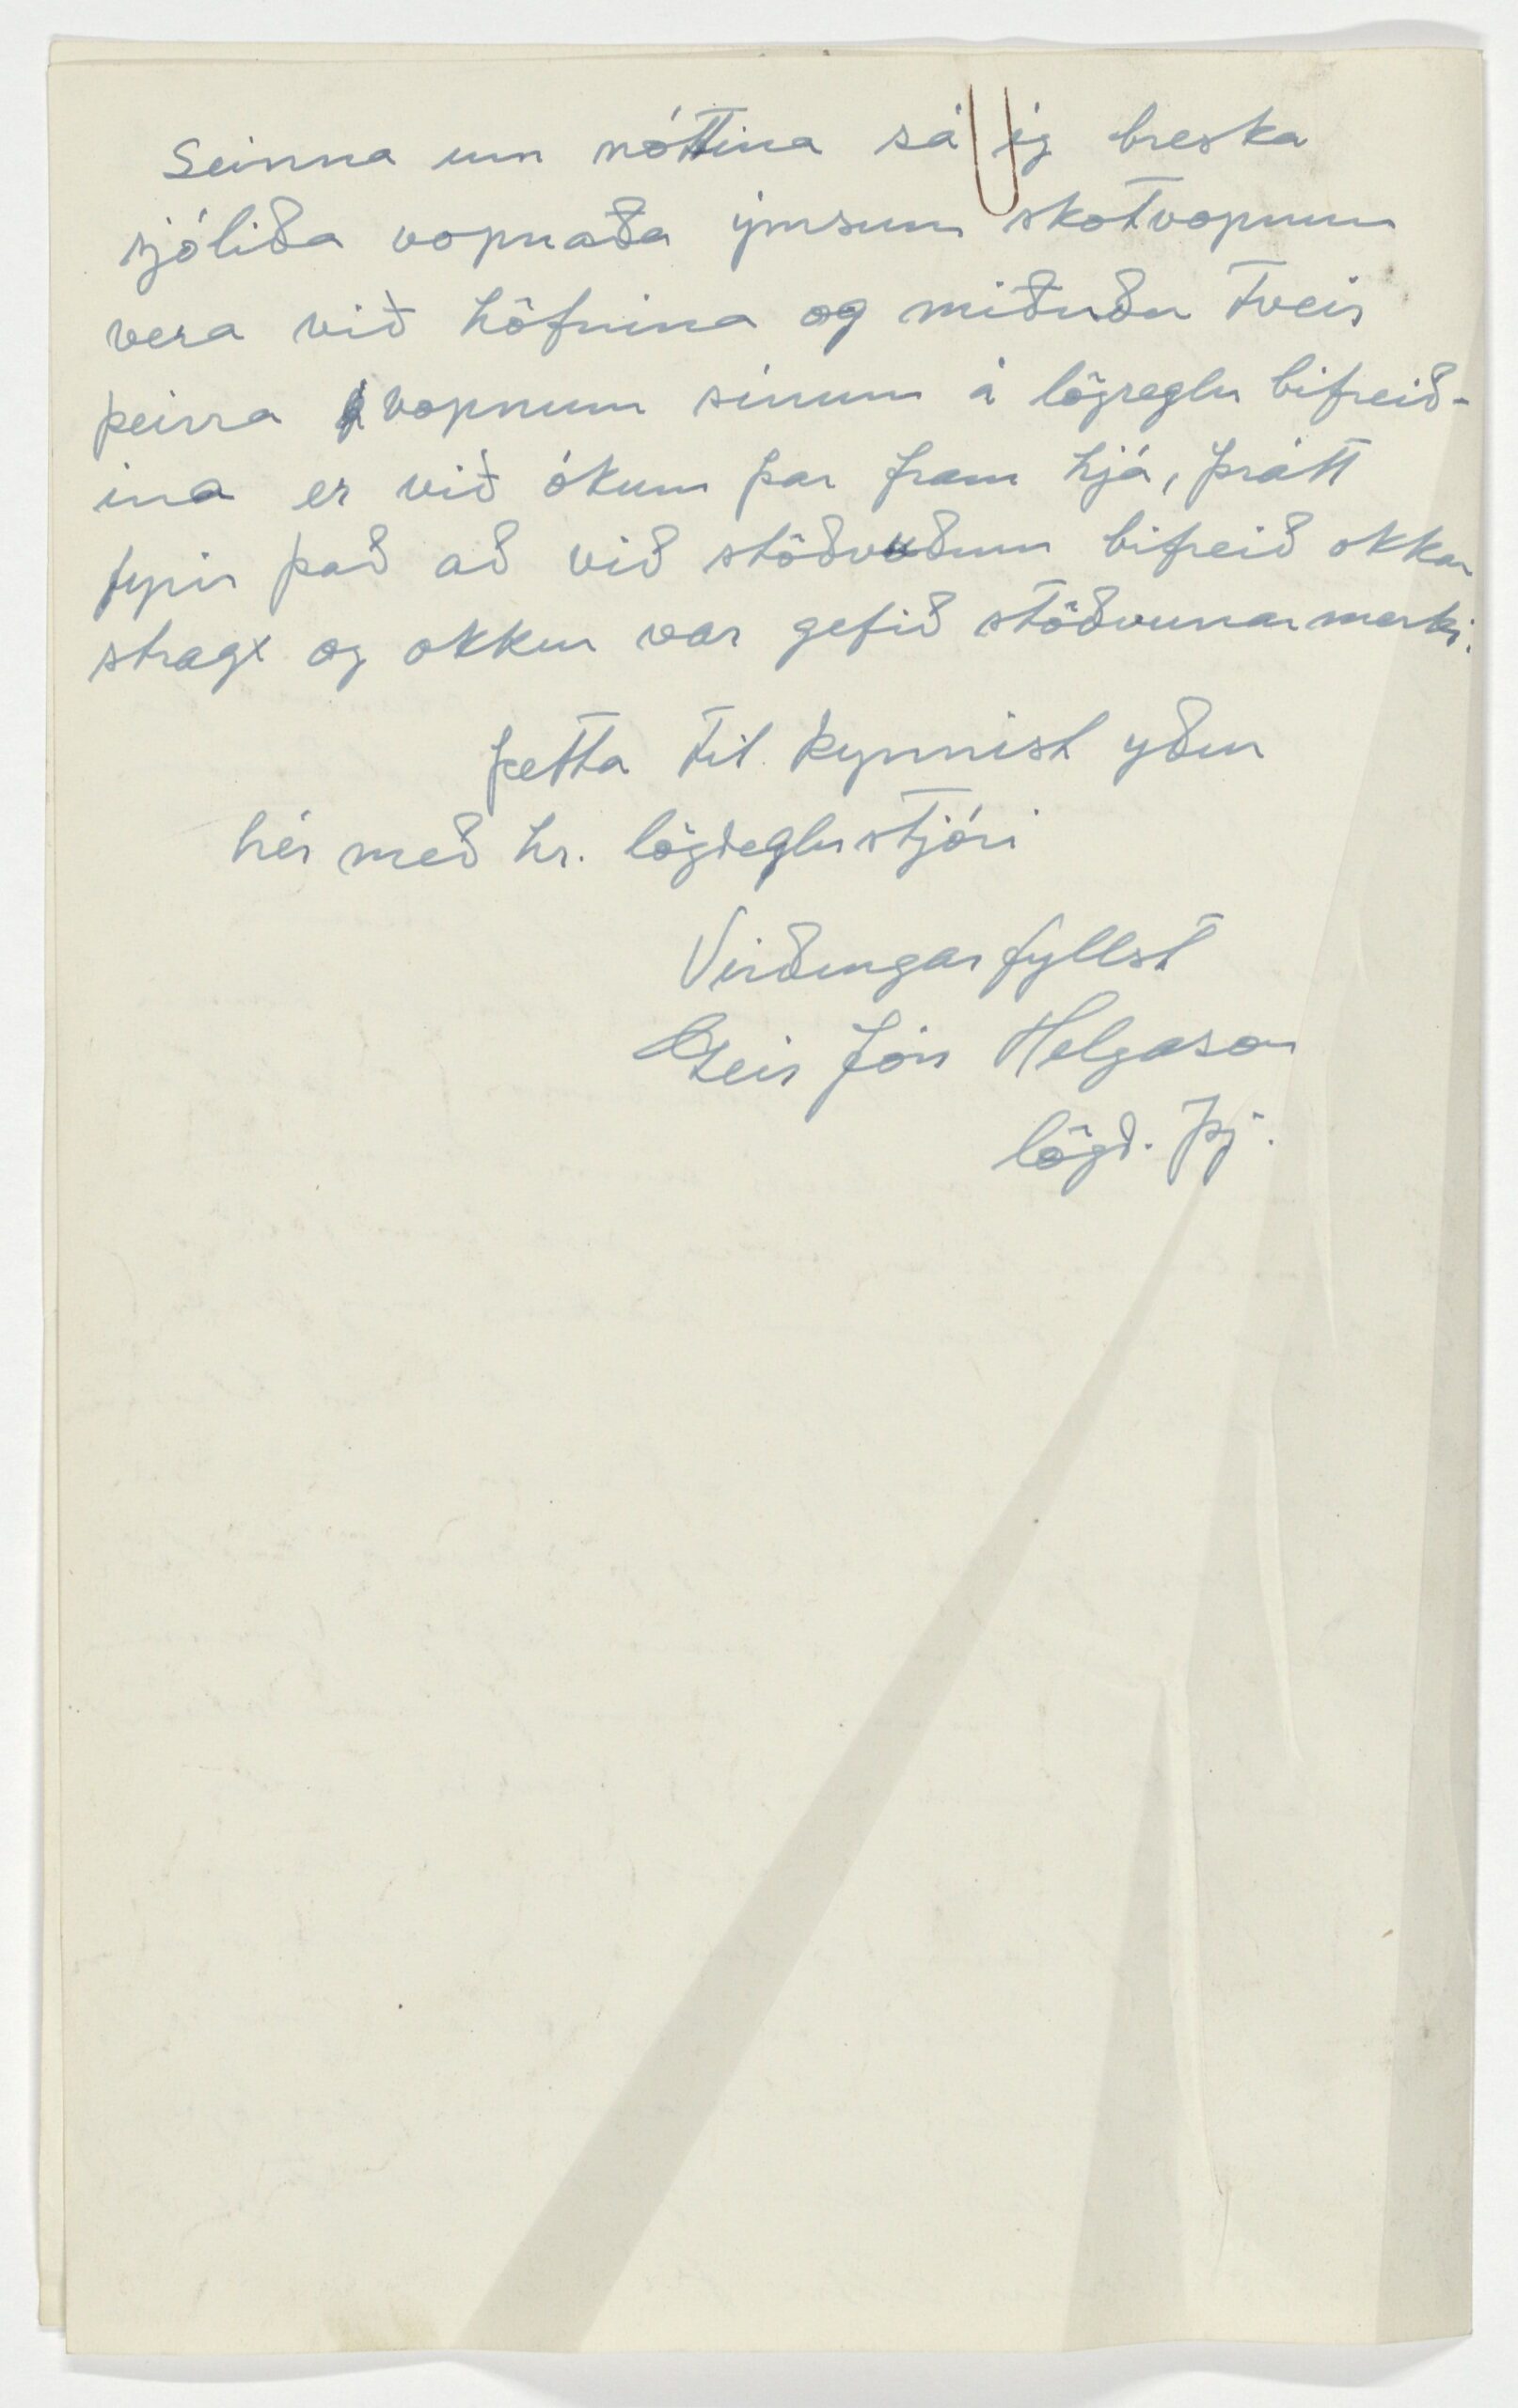 Seinna um nóttina sá ég breska
sjóliða vopnaða ýmsum skotvopnum
vera við höfnina og miðuðu tveir
þeirra vopnum sínum á lögreglu bifreið-
ina er við ókum þar fram hjá, þrátt
fyrir það að við stöðvuðum bifreið okkar
strax og okkur var gefið stöðvunar merki.
Þetta til kynnist yður
hér með hr. lögreglustjóri
Virðingarfyllst
Geir Jón Helgason
lögr. þj.